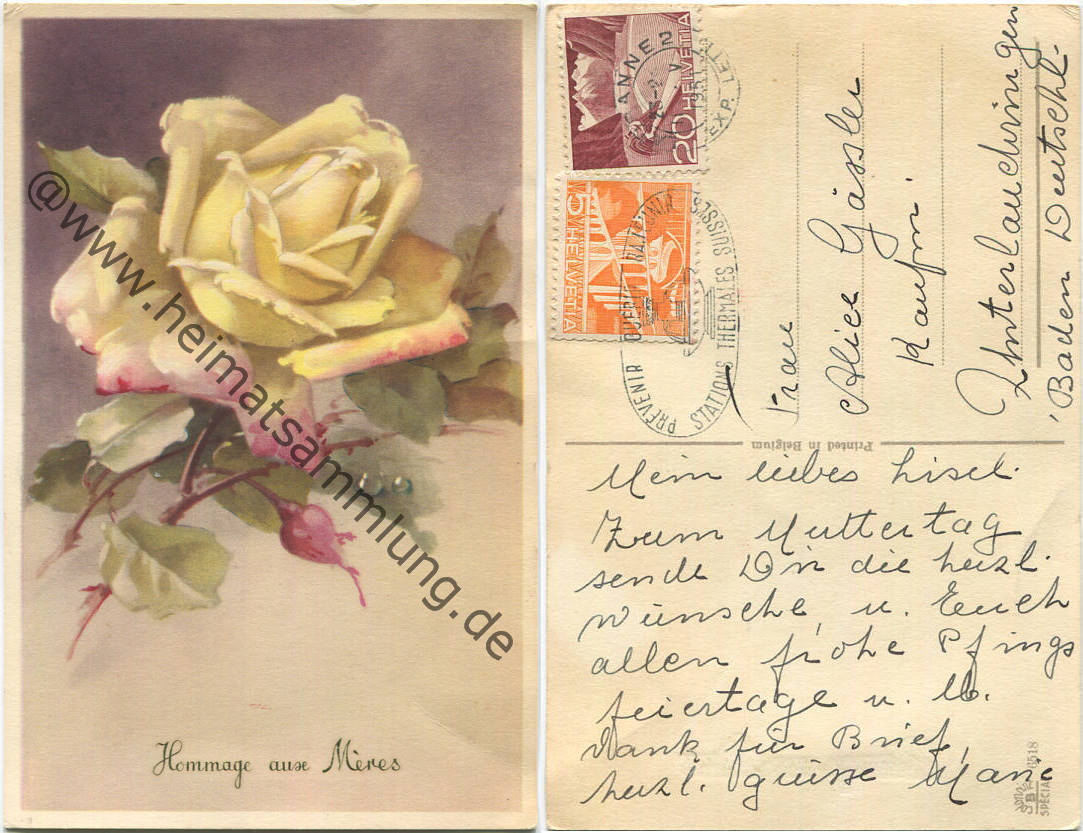 @www.heimatsammlung.de
Hommage aux Mères
20 HELVETIA
5 HELVETIA
ANNE 2
EXP. LET
PRÉVENIR GUÉRIR RAJEUNIR
STATIONS THERMALES SUISSES
Frau
Alice Gässler
Kaufm.
Unterlauchringen
Baden Deutschl-
Printed in Belgium
Mein liebes Lisel.
Zum Muttertag
sende Dir die herzl.
Wünsche, u. Euch
allen frohe Pfings
feiertage u. lb.
Dank für Brief,
herzl. Grüsse Marie
6518
SPECIAL